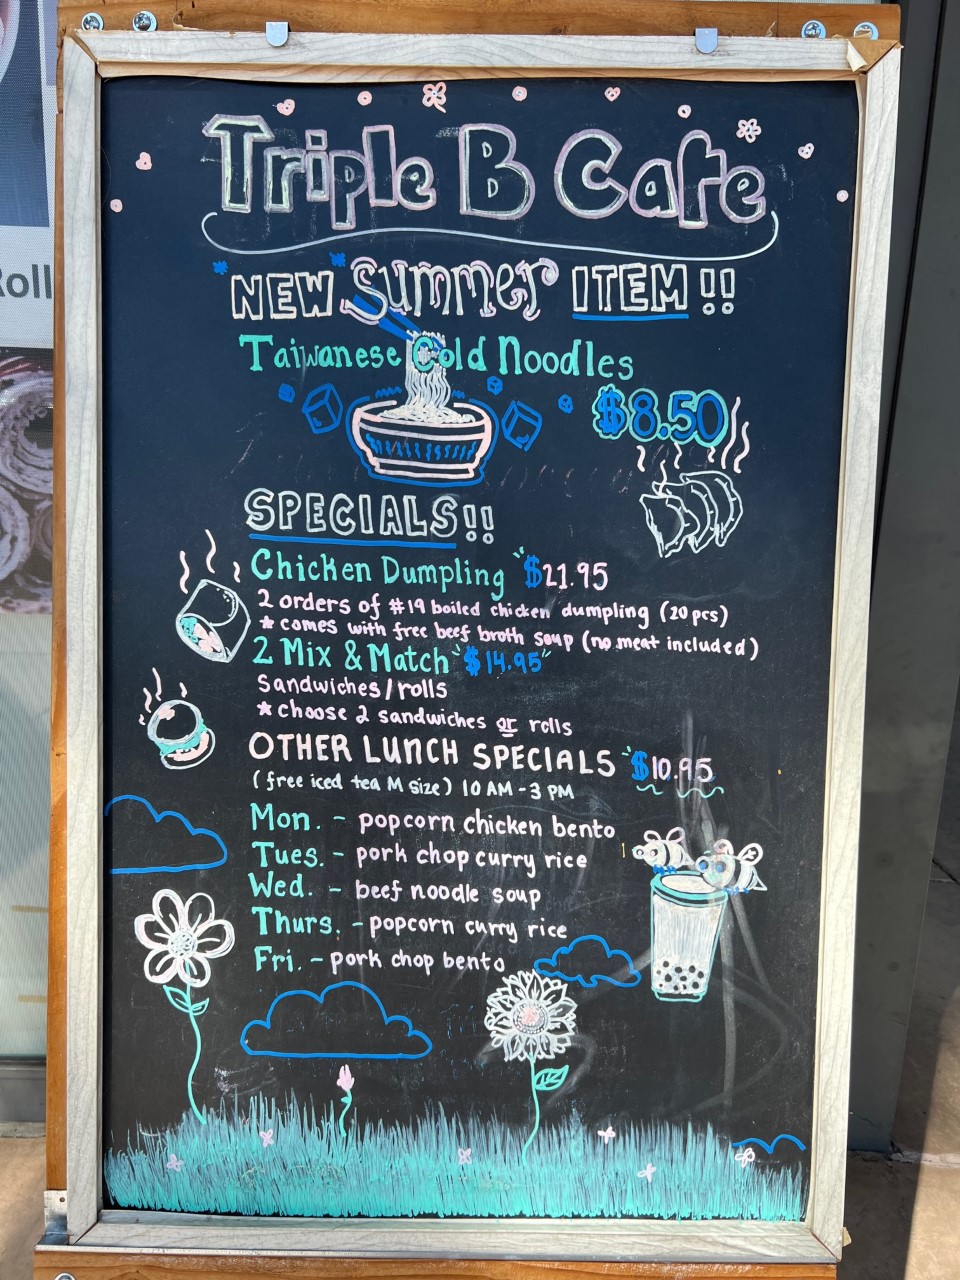 Roll
Triple B Cafe
NEW Summer ITEM!!
Taiwanese Cold Noodles
$8.50
SPECIALS!!
Chicken Dumpling $21.95
2 orders of #19 boiled chicken dumpling (20 pcs)
* comes with free beef broth soup (no meat included)
2 Mix & Match "$14.95"
Sandwiches/rolls
* choose 2 sandwiches or rolls
OTHER LUNCH SPECIALS $10.95
(free iced tea M size) 10 AM - 3 PM
Mon. - popcorn chicken bento
Tues. - pork chop curry rice
Wed. - beef noodle soup
Thurs. - popcorn curry rice
Fri. - pork chop bento